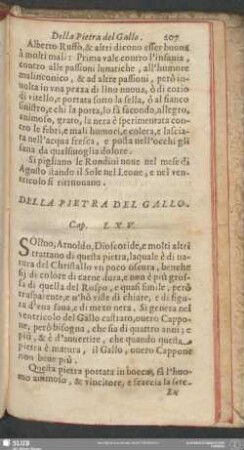 Della Pietra del Gallo. 207
Alberto Ruffo, & altri dicono esser buona
à molti mali: Prima vale contro l'insania,
contro alle passioni lunatiche, all'humore
malinconico, & ad altre passioni, però in-
uolta in vna pezza di lino nuoua, ò di corio
di vitello, e portata sotto la sella, ò al fianco
sinistro, e chi la porta, lo fà facondo, allegro,
animoso, grato, la nera è sperimentata con-
tro le febri, e mali humori, e colera, e lascia-
ta nell'acqua fresca, e posta nell'occhi gli
sana da qualsiuoglia dolore.
Si pigliano le Rondini noue nel mese di
Agosto stando il Sole nel Leone, e nel ven-
tricolo si ritrouano.
DELLA PIETRA DEL GALLO.
Cap. LXV.
SOlino, Arnoldo, Dioscoride, e molti altri
trattano di questa pietra, laquale è di na-
tura del Christallo vn poco oscura, benche
sij di colore di carne dura, e non è più gros-
sa di quella del Rospo, e quasi simile, però
trasparente, e n'hò viste di chiare, e di figu-
ra d'vna faua, e di mezo nera. Si genera nel
ventricolo del Gallo castrato, ouero Cappo-
ne, però bisogna, che sia di quattro anni; e
più, & è d'auuertire, che quando questa
pietra è matura, il Gallo, ouero Cappone
non beue più.
Questa pietra portata in bocca, fà l'huo-
mo animoso, & vincitore, e scaccia la sete.
SLUB